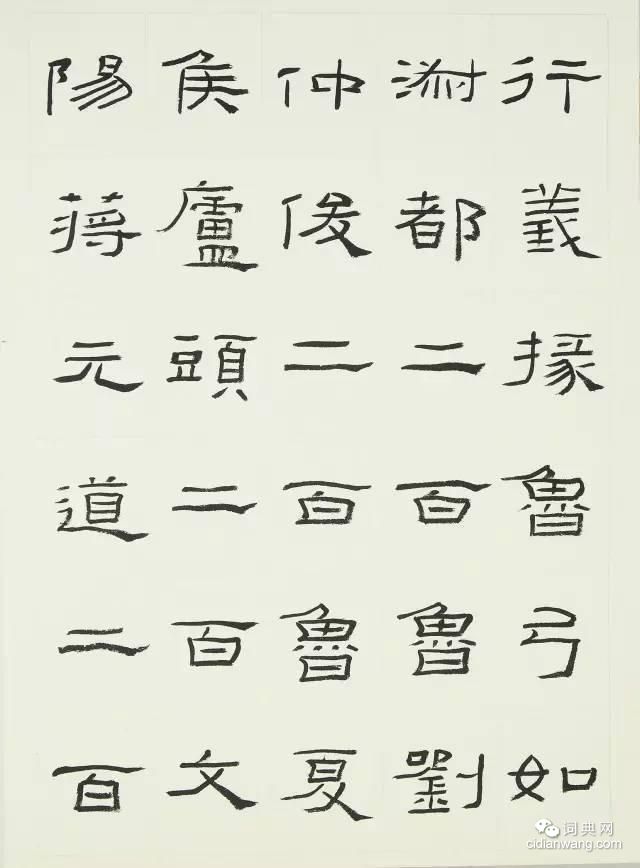 行義掾魯弓如
叔都二百魯劉
仲俊二百魯夏
侯廬頭二百文
陽蔣元道二百
词典网
cidianwang.com